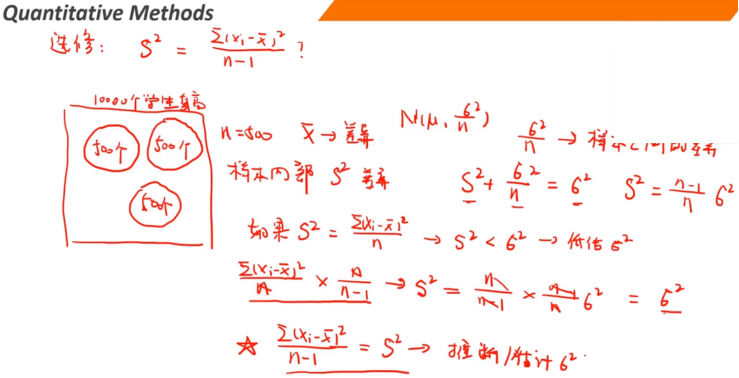 Quantitative Methods
选修: S² = Σ(xᵢ-x̄)²/n-1 ?
10000个学生身高
500个 500个 n=500 x̄→差异 N(μ, σ²/n) σ²/n → 样本之间的差异
样本内部 S² 差异 S² + σ²/n = σ² S² = n-1/n σ²
500个
如果 S² = Σ(xᵢ-x̄)²/n → S² < σ² → 低估 σ²
Σ(xᵢ-x̄)²/n × n/n-1 → S² = n/n-1 × n-1/n σ² = σ²
☆ Σ(xᵢ-x̄)²/n-1 = S² → 推断/估计 σ²